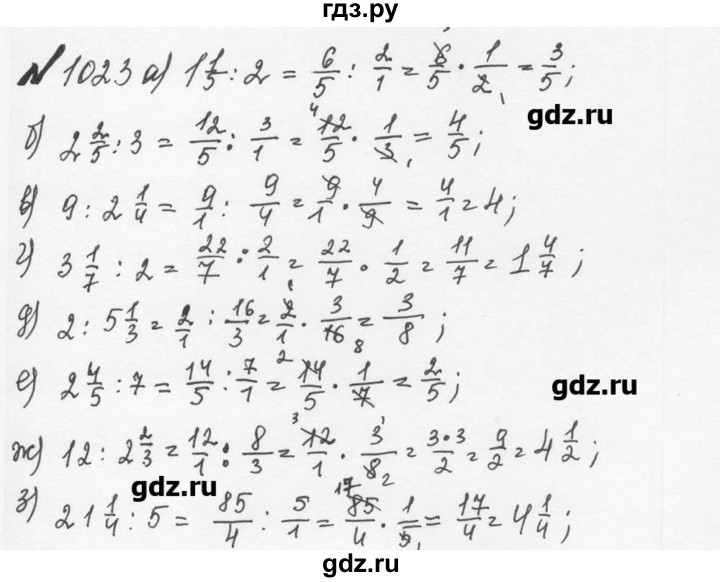 гдз.ру
№1023 а) 1 1/5 : 2 = 6/5 : 2/1 = 6/5 · 1/2 = 3/5;
гдз.ру
б) 2 2/5 : 3 = 12/5 : 3/1 = 12/5 · 1/3 = 4/5;
в) 9 : 2 1/4 = 9/1 : 9/4 = 9/1 · 4/9 = 4/1 = 4;
г) 3 1/7 : 2 = 22/7 : 2/1 = 22/7 · 1/2 = 11/7 = 1 4/7;
гдз.ру
д) 2 : 5 1/3 = 2/1 : 16/3 = 2/1 · 3/16 = 3/8;
е) 2 4/5 : 7 = 14/5 : 7/1 = 14/5 · 1/7 = 2/5;
гдз.ру
ж) 12 : 2 2/3 = 12/1 : 8/3 = 12/1 · 3/8 = 3·3/2 = 9/2 = 4 1/2;
гдз.ру
з) 21 1/4 : 5 = 85/4 : 5/1 = 85/4 · 1/5 = 17/4 = 4 1/4;
гдз.ру